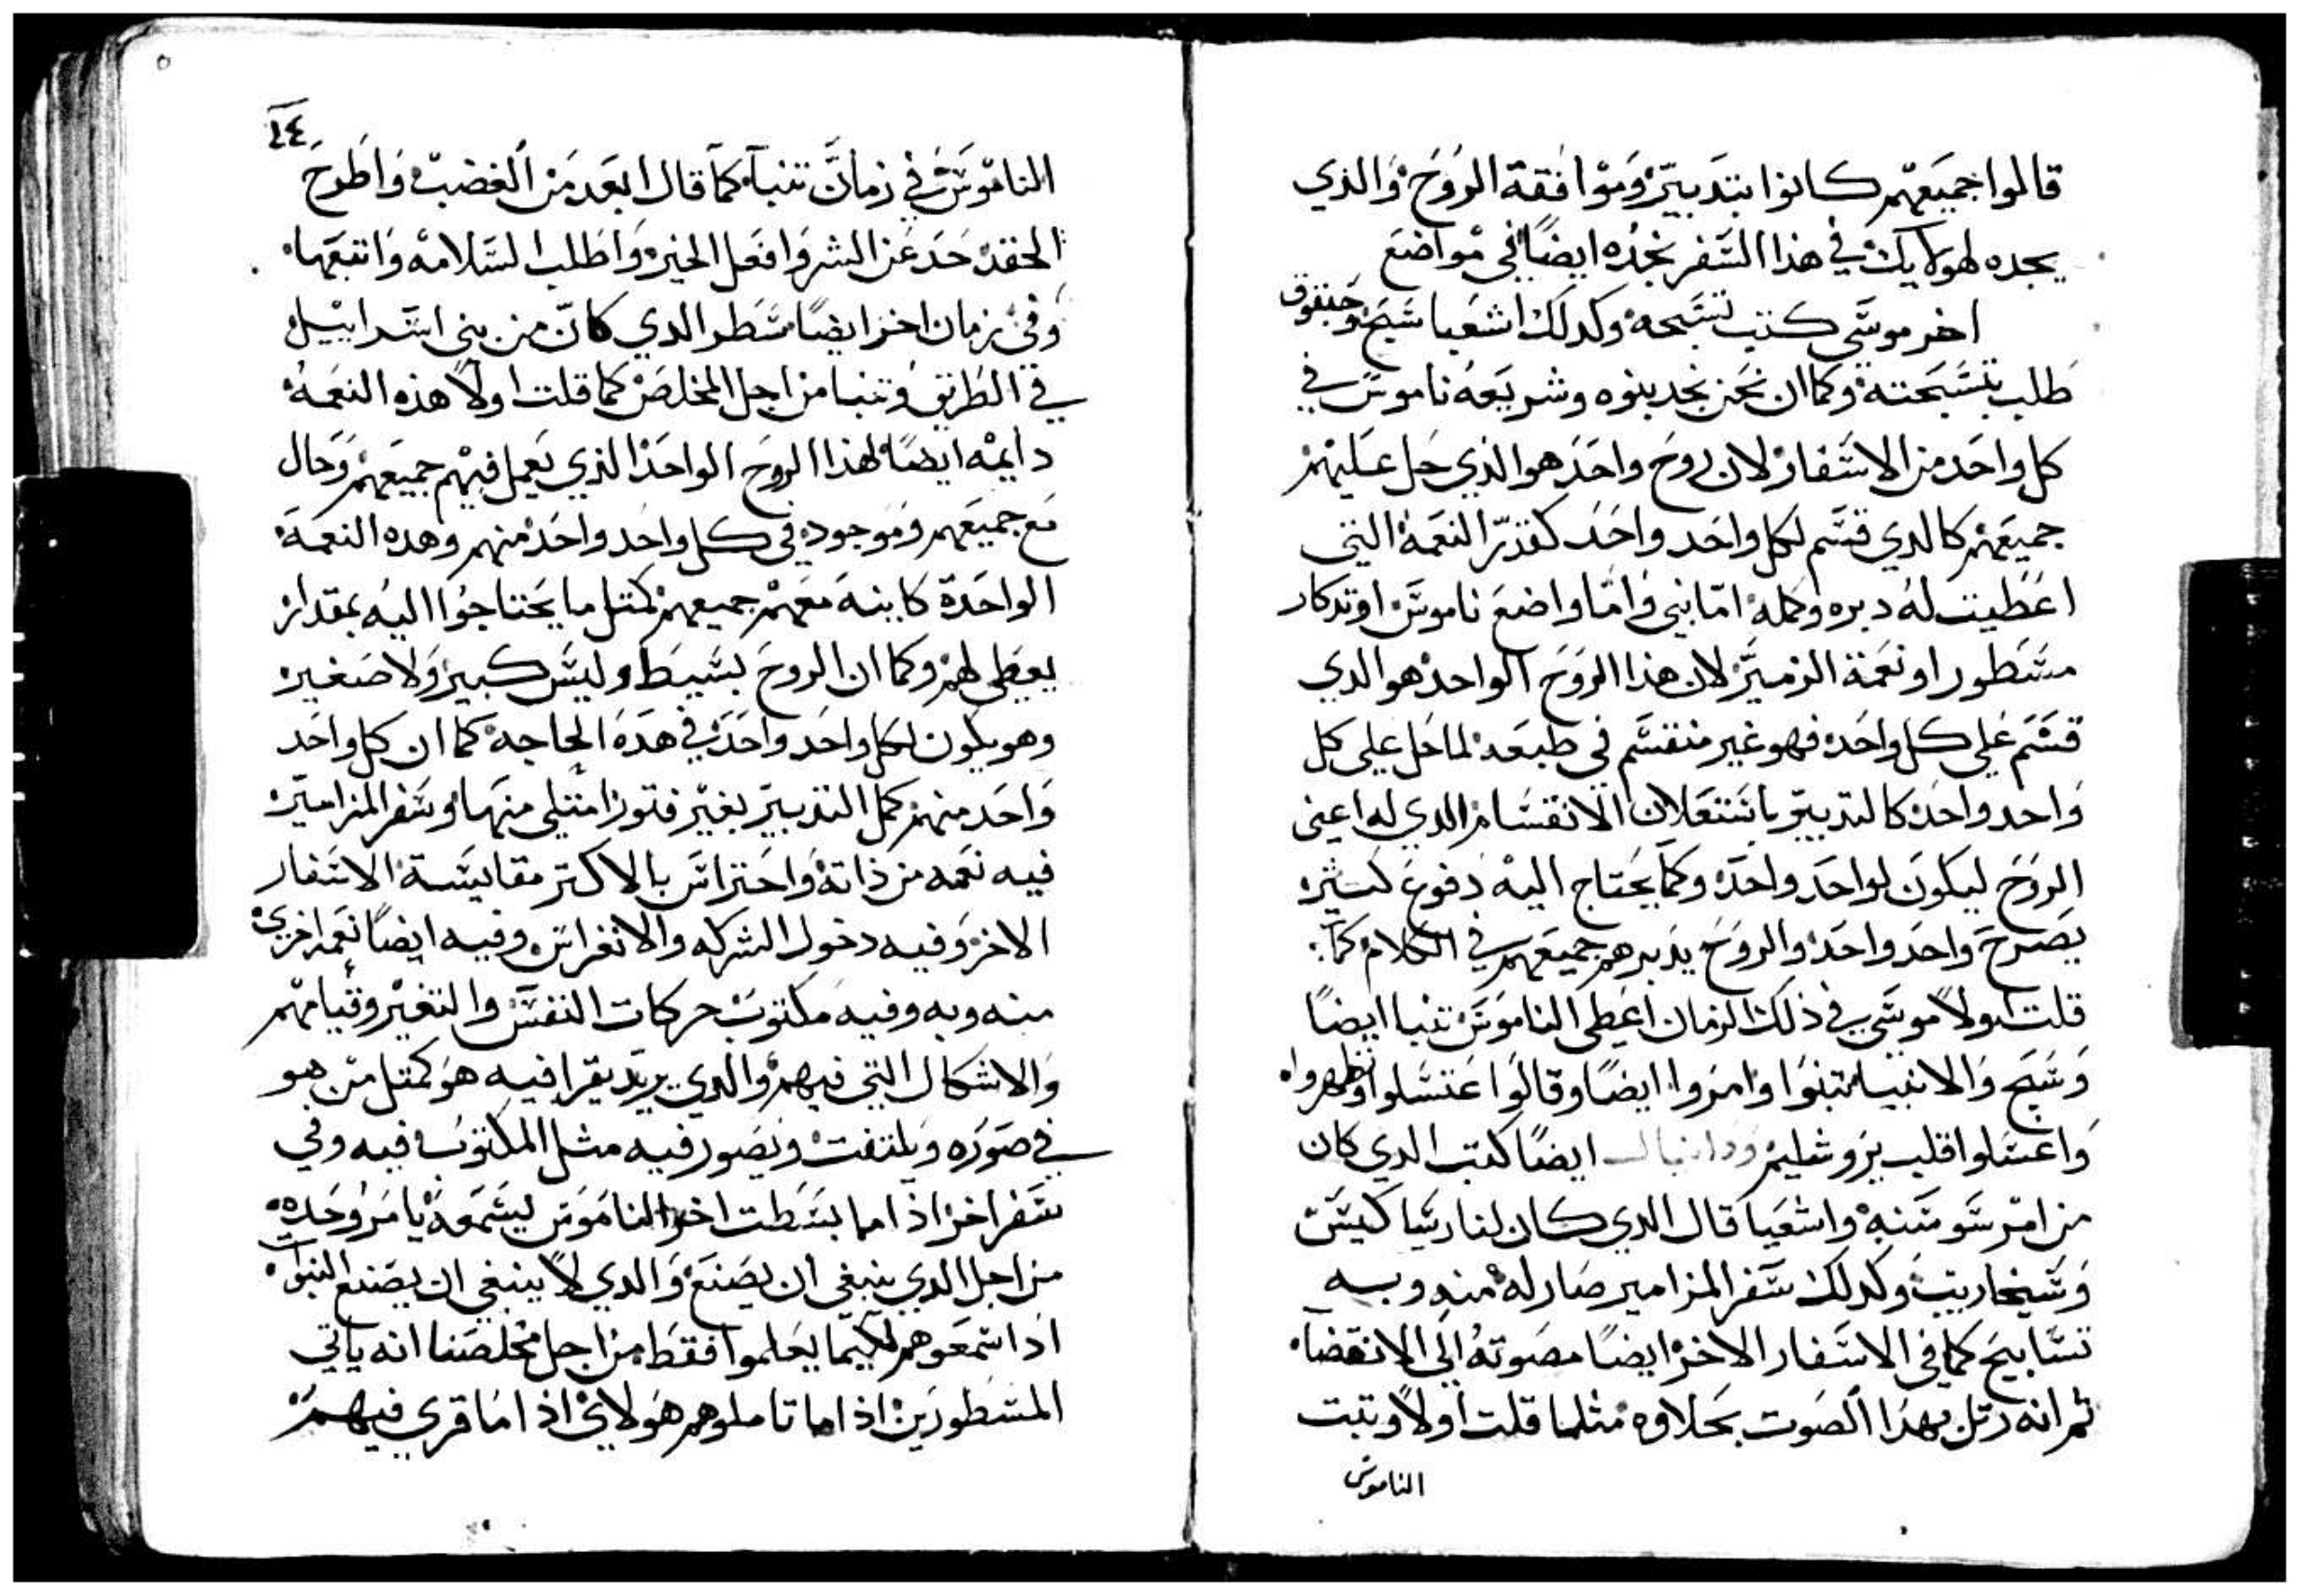 قالوا جميعهم كانوا بتدبير وموافقة الروح والذي
يجده لهولايك في هذا السفر نجده ايضًا في مواضع
اخر موسى كتب تسبحه وكدلك اشعيا سبح وحبقوق
طلب بتسبحته وكما ان نحن نجد بنوه وشريعه ناموس في
كل واحد من الاسفار لان روح واحد هو الذي حل عليهم
جميعهم كالدي قسم لكل واحد واحد كقدر النعمة التي
اعطيت له دبره وكمله امّا بني وامّا واضع ناموس او تدكار
مسطور او نعمة الزمير لان هذا الروح الواحد هو الدي
قسم على كل واحد فهو غير منقسم في طبعه لما حل على كل
واحد واحد كالتدبير باشتعلان الانقسام الدي له اعني
الروح ليكون لواحد واحد وكما يحتاج اليه دفوع كثير
يصرح واحد واحد والروح يدبرهم جميعهم في الكلام كما
قلت اولاً موسى في ذلك الزمان اعطى الناموس تنبا ايضًا
وسبح والانبيا تنبوا وامروا ايضًا وقالوا اغتسلوا وتطهروا
واغسلوا قلب يروشليم ودانيال ايضًا كتب الدي كان
من امر سوسنه واشعيا قال الدي كان لنا ربشاكيس
وسنحاريب وكدلك سفر المزامير صار له منه وبه
تسابيح كما في الاسفار الاخر ايضًا مصوته الى الانقضا
ثم انه رتل بهدا الصوت بحلاوه مثلما قلت اولاً وتبت
الناموس
٢٤
الناموس في زمان تنبا كما قال ابعد من الغضب واطرح
الحقد حد عن الشر وافعل الخير واطلب السلامه واتبعها
وفي زمان اخر ايضًا سطر الدي كان من بني اسراييل
في الطريق وتنبا من اجل المخلص كما قلت اولاً هذه النعمه
دايمه ايضًا لهذا الروح الواحد الذي يعمل فيهم جميعهم وحال
مع جميعهم وموجود في كل واحد واحد منهم وهده النعمة
الواحدة كاينه معهم جميعهم كمتل ما يحتاجوا اليه بمقدار
يعطى لهم وكما ان الروح بسيط وليس كبير ولا صغير
وهو يكون لكل واحد واحد في هده الحاجه كما ان كل واحد
واحد منهم كمل التدبير بغير فتور امتلى منها وسفر المزامير
فيه نعمه من ذاته واحتراس بالاكتر مقايسة الاسفار
الاخر وفيه دخول الشركه والانغراس وفيه ايضًا نعمه اخرى
منه وبه وفيه مكتوب حركات النفس والتغير وقيامهم
والاشكال التي فيهم والدي يريد يقرا فيه هو كمتل من هو
في صوره ويلتفت ويصور فيه مثل المكتوب فيه وفي
سفر اخر اذ اما بسطت اخر الناموس ليسمعه يامر وحده
من اجل الدي ينبغي ان يصنع والدي لا ينبغي ان يصنع النبوا
اداسمعوهم لكيما يعلموا فقط من اجل مخلصنا انه ياتي
المسطورين اذ اما تاملوهم هولاي اذ اما قري فيهم